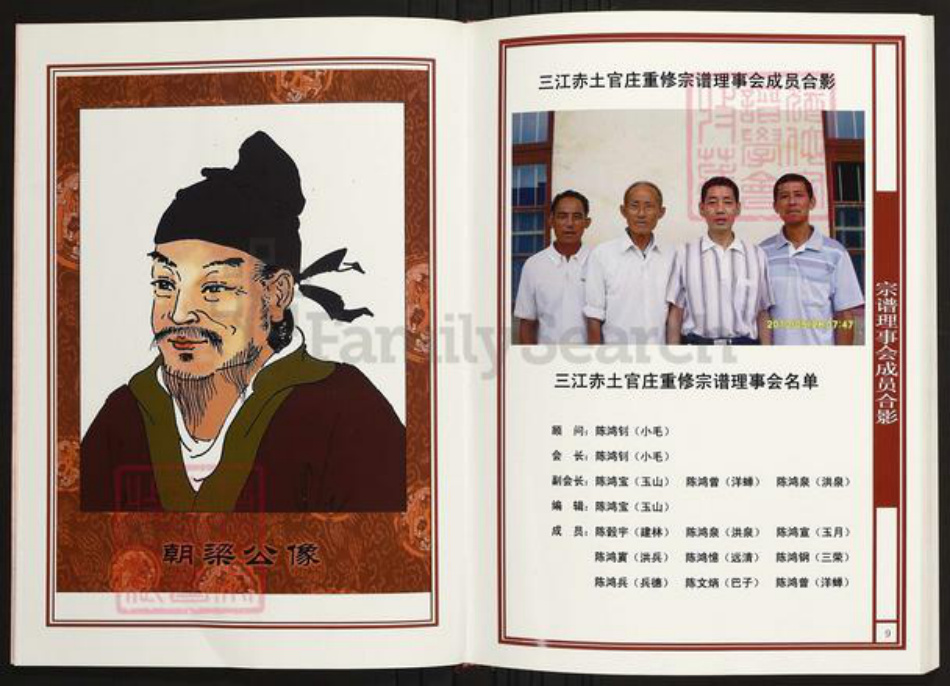 朝梁公像
三江赤土官庄重修宗谱理事会成员合影
三江赤土官庄重修宗谱理事会名单
顾 问：陈鸿钊（小毛）
会 长：陈鸿钊（小毛）
副会长：陈鸿宝（玉山） 陈鸿曾（洋蝉） 陈鸿泉（洪泉）
编 辑：陈鸿宝（玉山）
成 员：陈毅宇（建林） 陈鸿泉（洪泉） 陈鸿宣（玉月）
陈鸿寅（洪兵） 陈鸿憶（远清） 陈鸿钢（三荣）
陈鸿兵（兵德） 陈文炳（巴子） 陈鸿曾（洋蝉）
宗谱理事会成员合影
9
FamilySearch